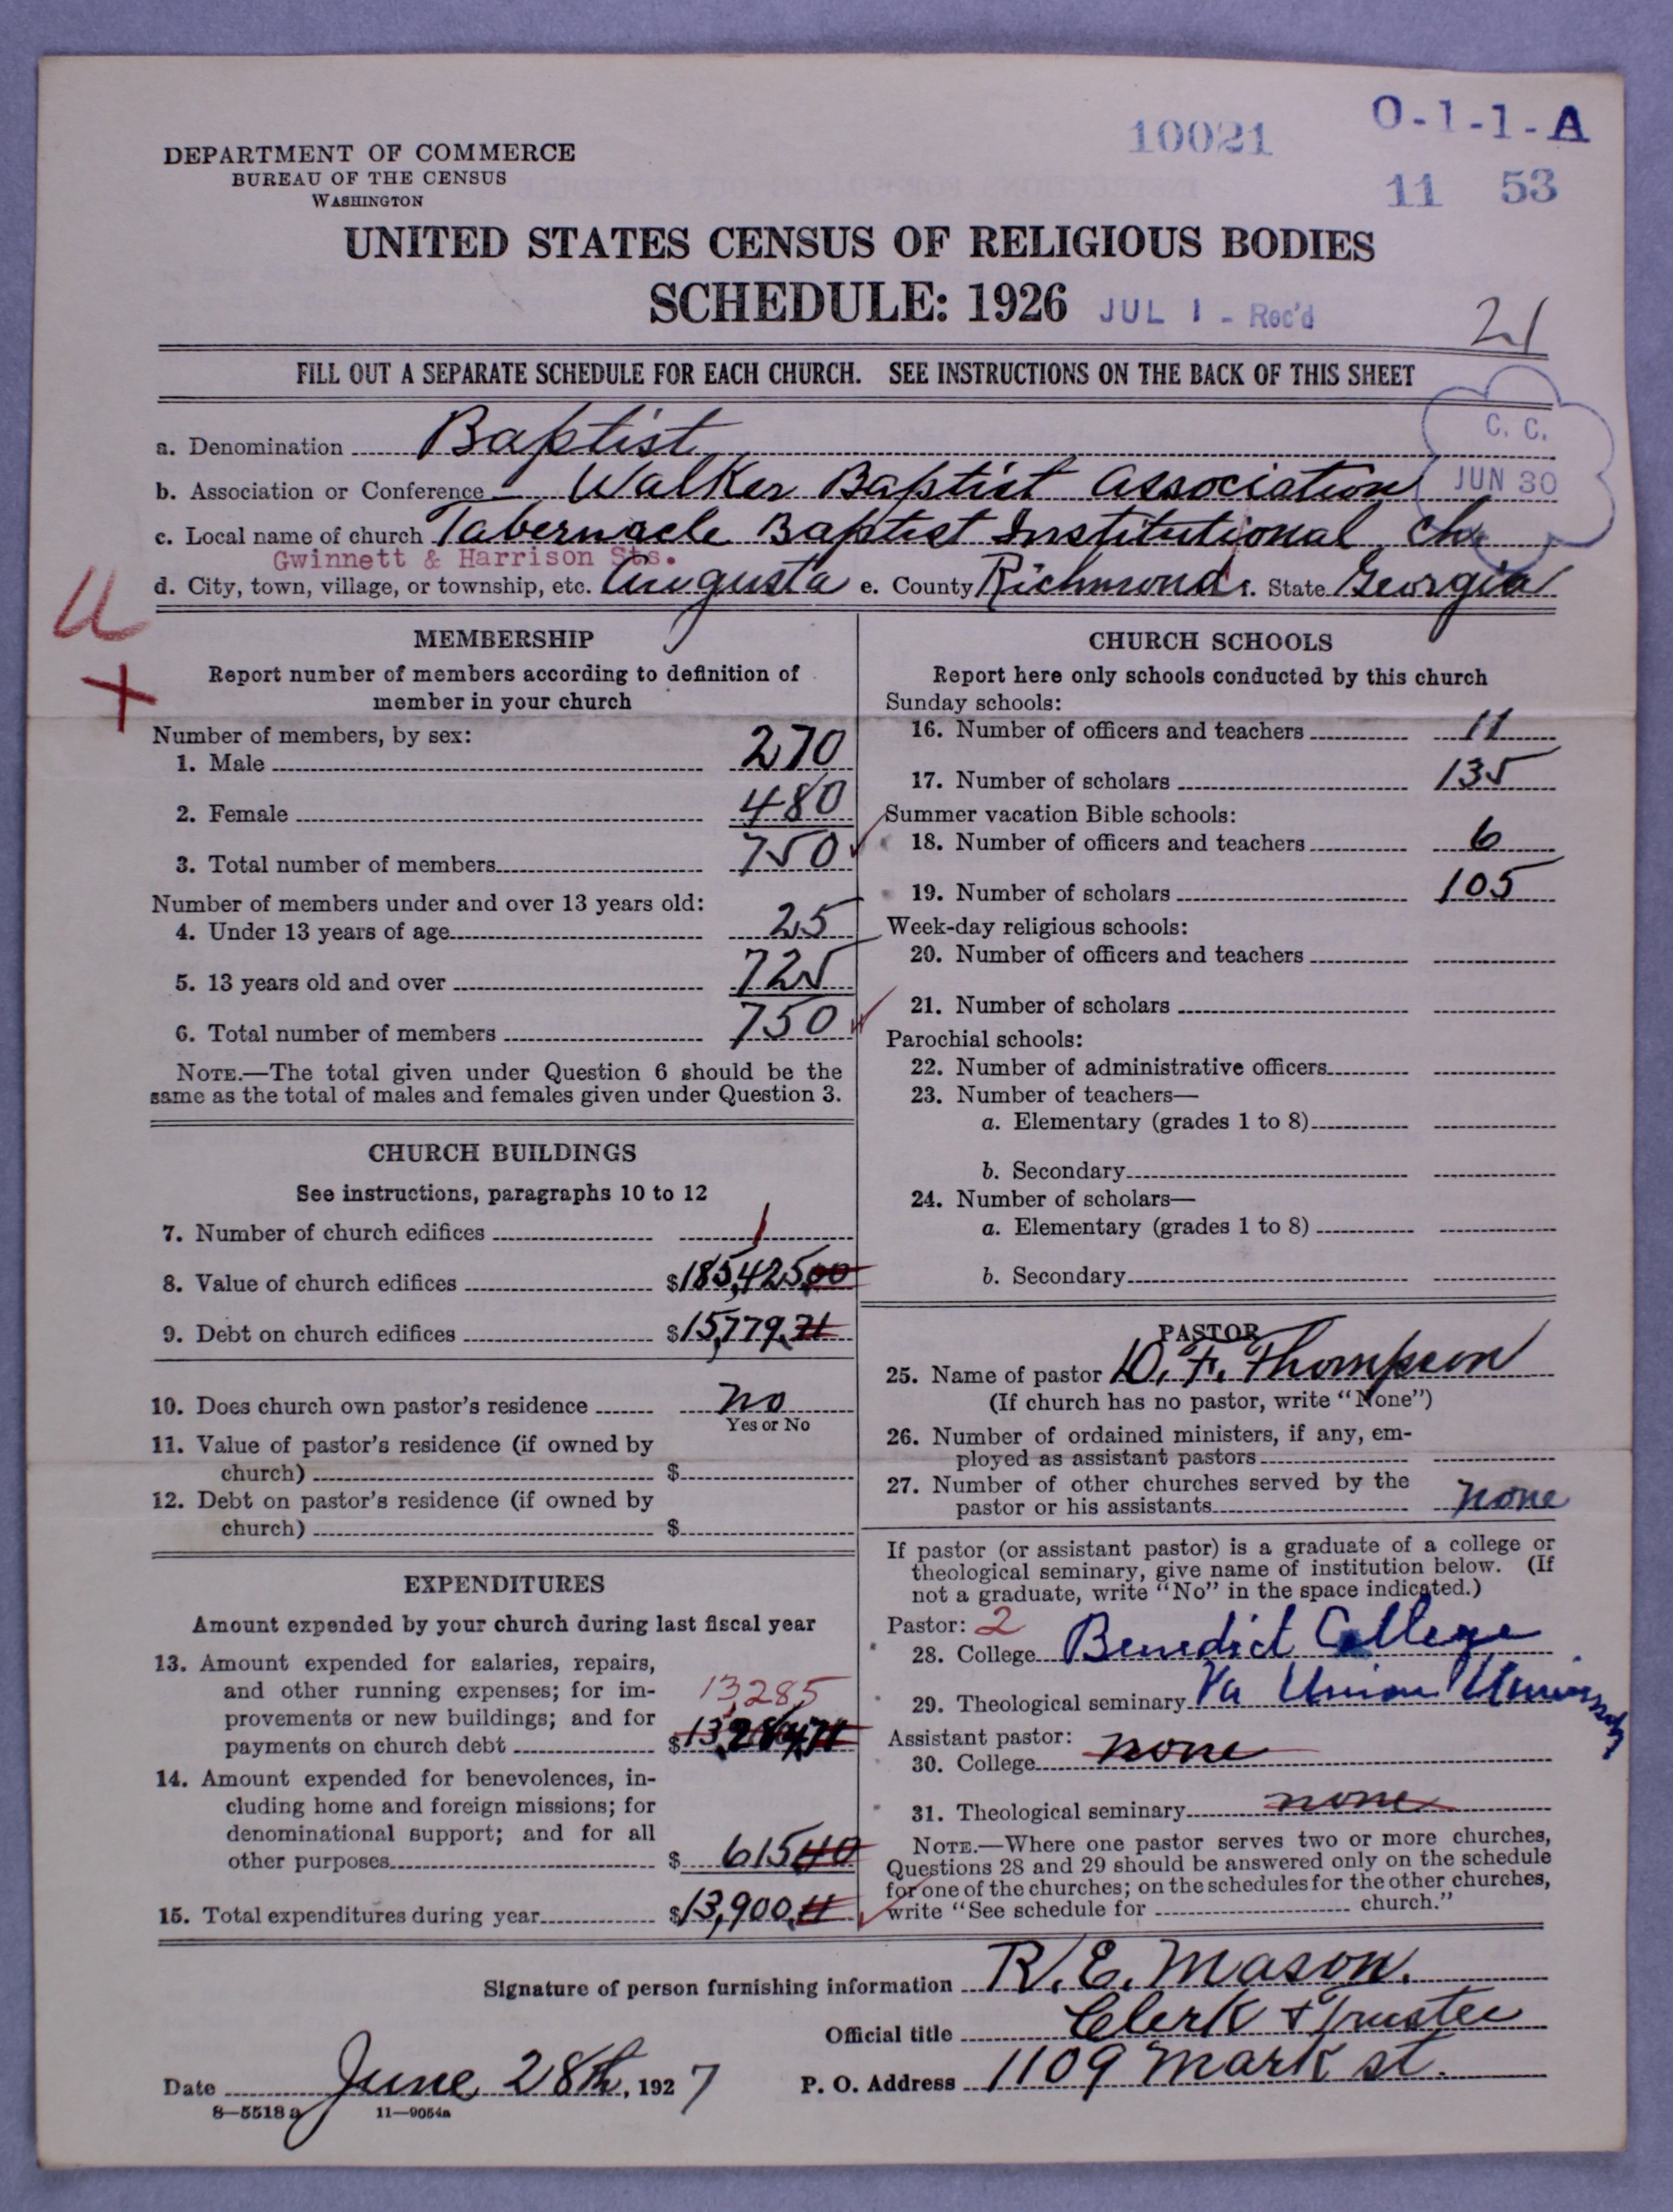 10021
O-1-1-A
11 53
DEPARTMENT OF COMMERCE
BUREAU OF THE CENSUS
WASHINGTON
UNITED STATES CENSUS OF RELIGIOUS BODIES
SCHEDULE: 1926 JUL 1 - Rec'd
21
FILL OUT A SEPARATE SCHEDULE FOR EACH CHURCH. SEE INSTRUCTIONS ON THE BACK OF THIS SHEET
C. C.
JUN 30
a. Denomination Baptist
b. Association or Conference Walker Baptist Association
c. Local name of church Tabernacle Baptist Institutional Ch.
Gwinnett & Harrison Sts.
d. City, town, village, or township, etc. Augusta e. County Richmond f. State Georgia
MEMBERSHIP
Report number of members according to definition of
member in your church
Number of members, by sex:
1. Male 270
2. Female 480
3. Total number of members 750
Number of members under and over 13 years old:
4. Under 13 years of age 25
5. 13 years old and over 725
6. Total number of members 750
NOTE.—The total given under Question 6 should be the
same as the total of males and females given under Question 3.
CHURCH BUILDINGS
See instructions, paragraphs 10 to 12
7. Number of church edifices 1
8. Value of church edifices $185,425.00
9. Debt on church edifices $15,779.71
10. Does church own pastor's residence No
Yes or No
11. Value of pastor's residence (if owned by
church) $
12. Debt on pastor's residence (if owned by
church) $
EXPENDITURES
Amount expended by your church during last fiscal year
13. Amount expended for salaries, repairs,
and other running expenses; for im-
provements or new buildings; and for
payments on church debt $
13,285
14. Amount expended for benevolences, in-
cluding home and foreign missions; for
denominational support; and for all
other purposes $ 615 40
15. Total expenditures during year $13,900.11
CHURCH SCHOOLS
Report here only schools conducted by this church
Sunday schools:
16. Number of officers and teachers 11
17. Number of scholars 135
Summer vacation Bible schools:
18. Number of officers and teachers 6
19. Number of scholars 105
Week-day religious schools:
20. Number of officers and teachers
21. Number of scholars
Parochial schools:
22. Number of administrative officers
23. Number of teachers—
a. Elementary (grades 1 to 8)
b. Secondary
24. Number of scholars—
a. Elementary (grades 1 to 8)
b. Secondary
PASTOR
25. Name of pastor D. F. Thompson
(If church has no pastor, write "None")
26. Number of ordained ministers, if any, em-
ployed as assistant pastors
27. Number of other churches served by the
pastor or his assistants none
If pastor (or assistant pastor) is a graduate of a college or
theological seminary, give name of institution below. (If
not a graduate, write "No" in the space indicated.)
Pastor: 2
28. College Benedict College
29. Theological seminary Va Union University
Assistant pastor:
30. College none
31. Theological seminary none
NOTE.—Where one pastor serves two or more churches,
Questions 28 and 29 should be answered only on the schedule
for one of the churches; on the schedules for the other churches,
write "See schedule for church."
Signature of person furnishing information R. E. Mason.
Official title Clerk & Trustee
Date June 28th, 1927 P. O. Address 1109 Mark st.
8—5518a 11—9054a